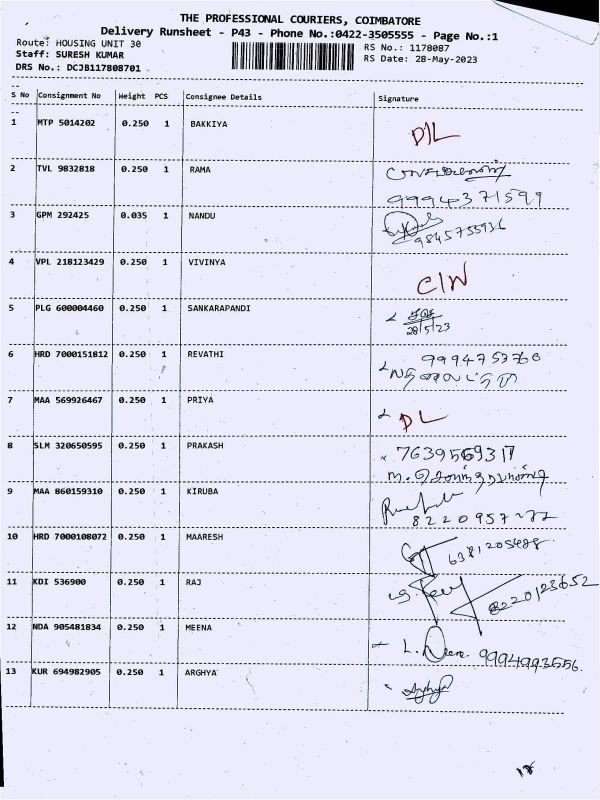 THE PROFESSIONAL COURIERS, COIMBATORE
Delivery Runsheet - P43 - Phone No.:0422-3505555 - Page No.:1
Route: HOUSING UNIT 30
RS No.: 1178087
Staff: SURESH KUMAR
RS Date: 28-May-2023
DRS No.: DCJB117808701
S No Consignment No Weight PCS Consignee Details Signature
1 MTP 5014202 0.250 1 BAKKIYA D/L
2 TVL 9832818 0.250 1 RAMA
9994371591
3 GPM 292425 0.035 1 NANDU
9845755936
4 VPL 218123429 0.250 1 VIVINYA C/W
5 PLG 600004460 0.250 1 SANKARAPANDI
28/5/23
6 HRD 7000151812 0.250 1 REVATHI 9994753760
7 MAA 569926467 0.250 1 PRIYA DL
8 SLM 320650595 0.250 1 PRAKASH 7639569317
9 MAA 860159310 0.250 1 KIRUBA
10 HRD 7000108072 0.250 1 MAARESH
11 KDI 536900 0.250 1 RAJ
8220123652
12 NDA 905481834 0.250 1 MEENA
9994993556.
13 KUR 694982905 0.250 1 ARGHYA